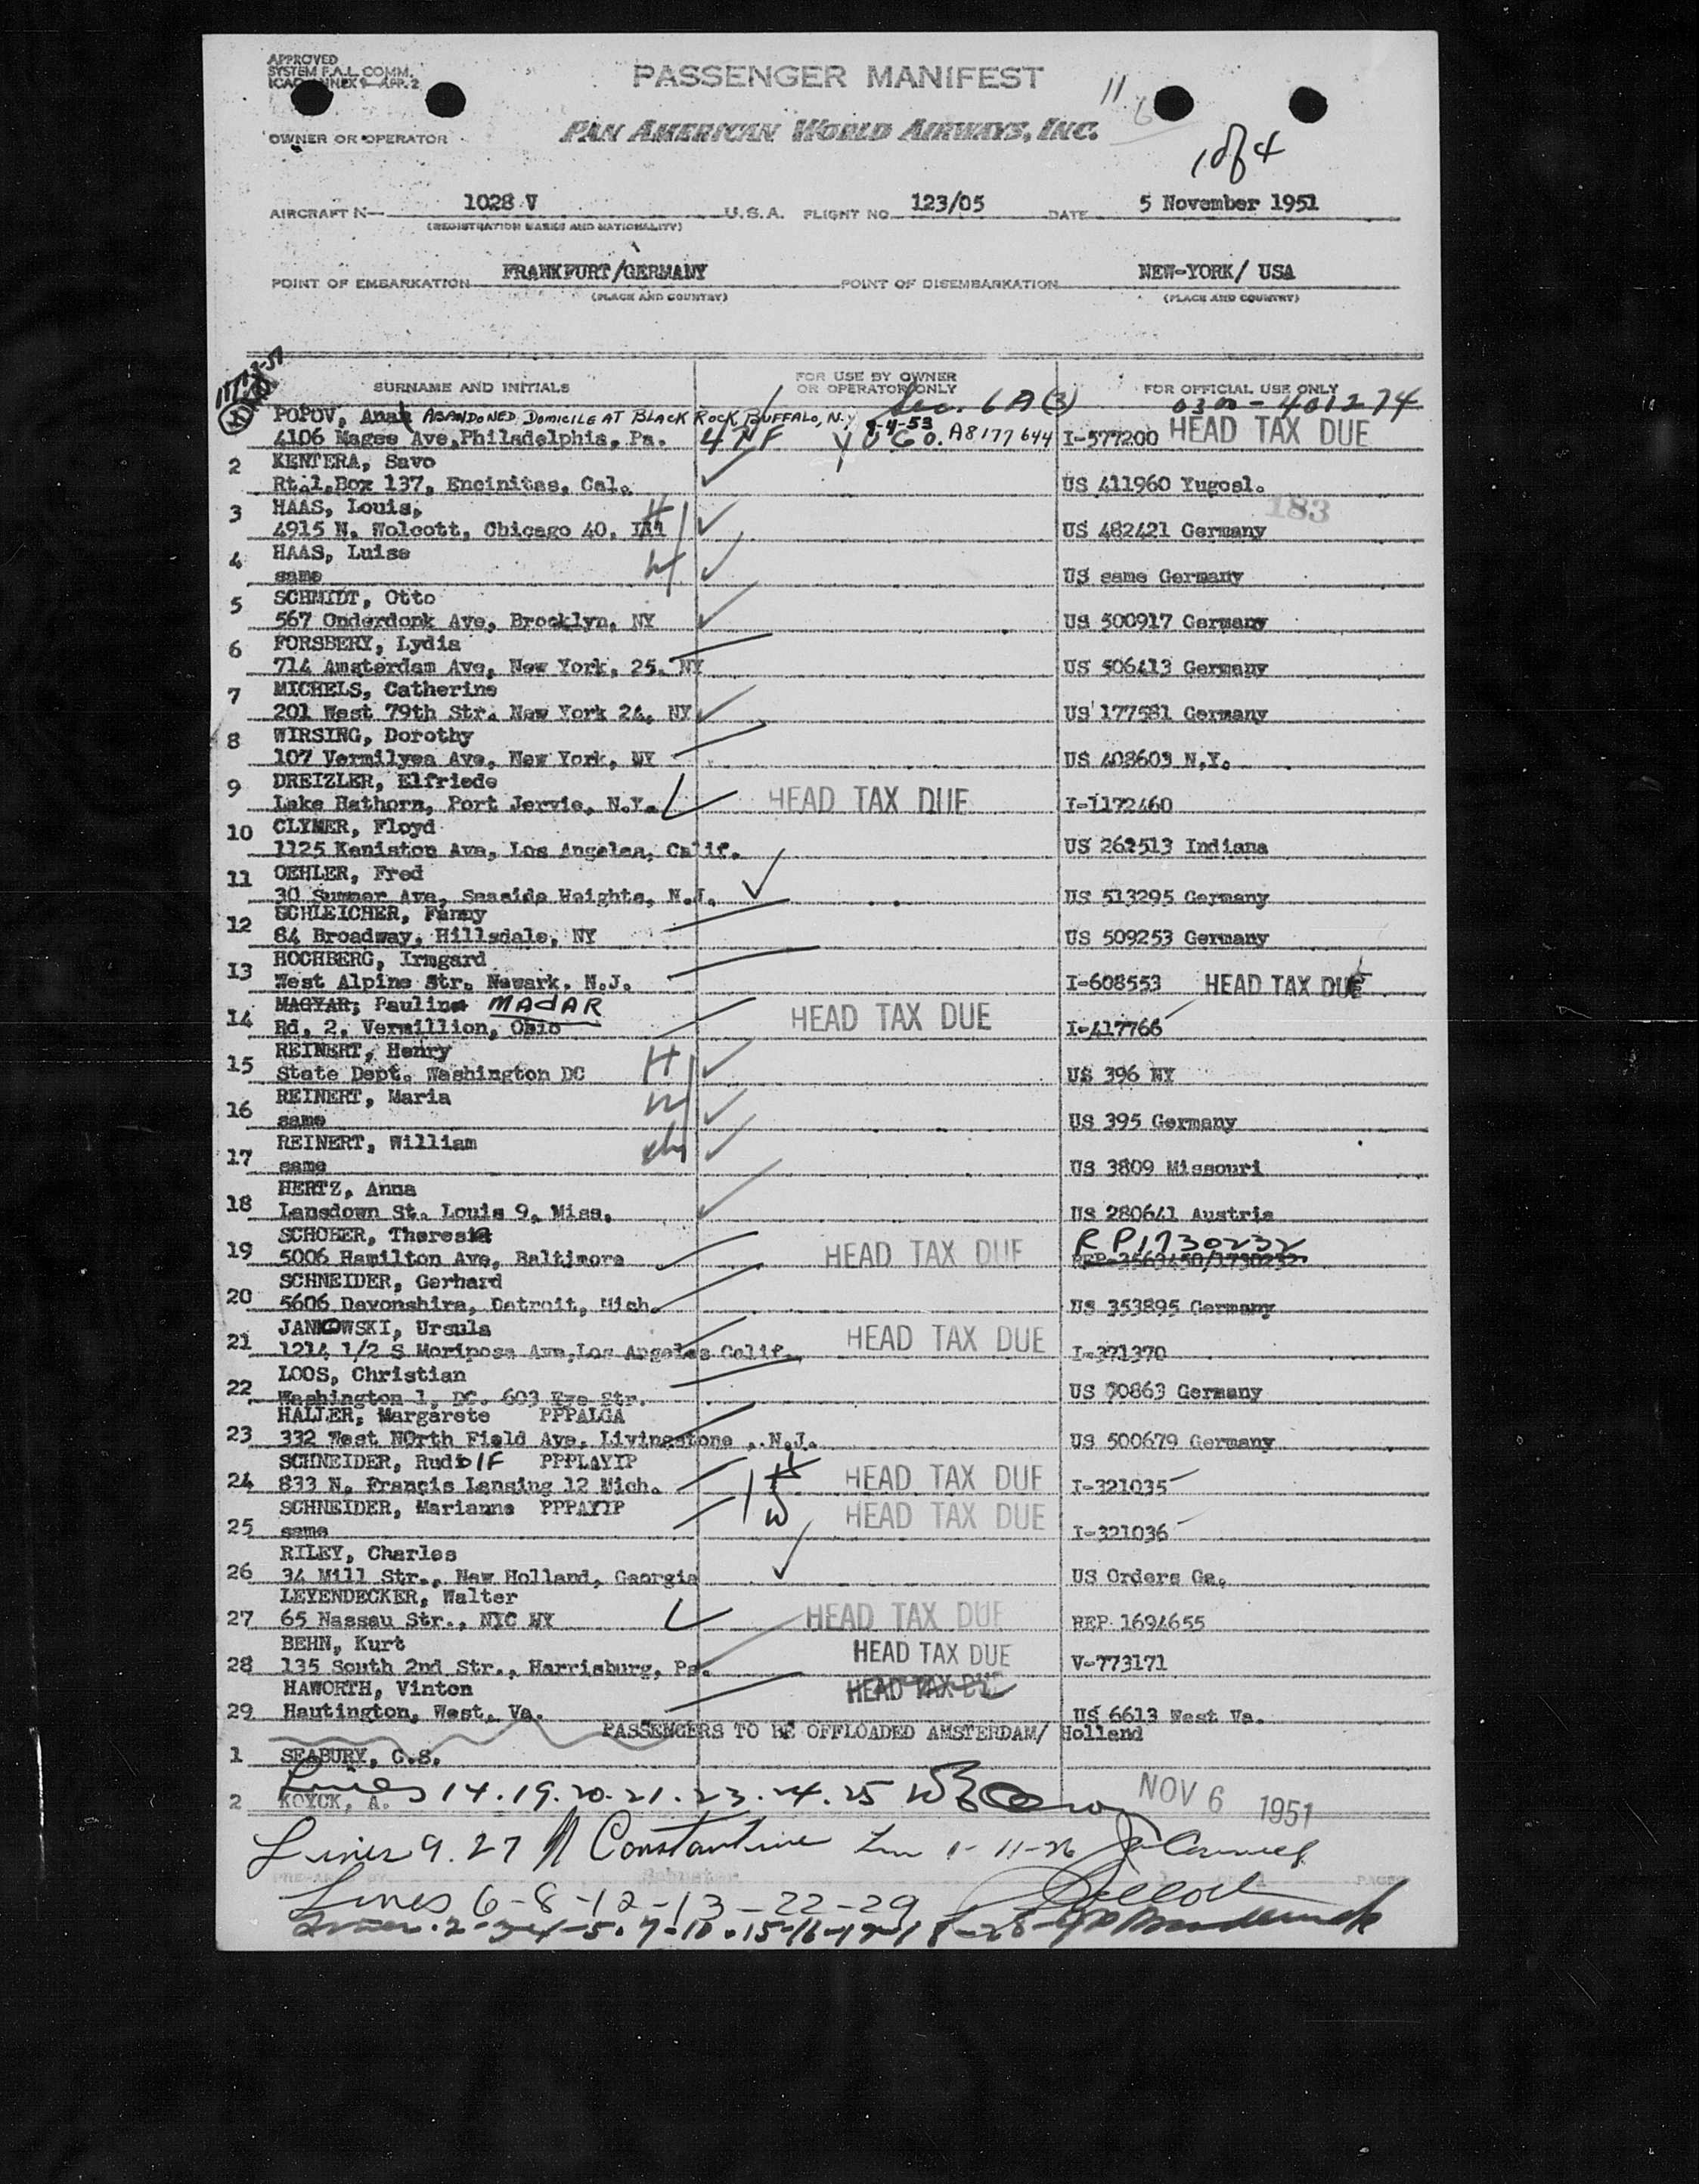 APPROVED
SYSTEM F.A.L. COMM.
ICAO ANNEX 9 APP. 2
PASSENGER MANIFEST
11
6
OWNER OR OPERATOR
PAN AMERICAN WORLD AIRWAYS, INC.
1 of 4
AIRCRAFT N— 1028 V U.S.A. FLIGHT NO. 123/05 DATE 5 November 1951
(REGISTRATION MARKS AND NATIONALITY)
POINT OF EMBARKATION FRANKFURT/GERMANY POINT OF DISEMBARKATION NEW-YORK/ USA
(PLACE AND COUNTRY) (PLACE AND COUNTRY)
SURNAME AND INITIALS FOR USE BY OWNER OR OPERATOR ONLY FOR OFFICIAL USE ONLY
Sec. 6A(3) 0300-401274
POPOV, Anah ABANDONED DOMICILE AT BLACK ROCK, BUFFALO, N.Y. 9-4-53
4106 Magee Ave,Philadelphia, Pa. 4 NF YUGO. A8177644 I-577200 HEAD TAX DUE
2 KENTERA, Savo
Rt.1.Box 137, Encinitas, Cal. US 411960 Yugosl.
183
3 HAAS, Louis, H
4915 N. Wolcott, Chicago 40, Ill US 482421 Germany
4 HAAS, Luise W
same US same Germany
5 SCHMIDT, Otto
567 Onderdonk Ave, Brooklyn, NY US 500917 Germany
6 FORSBERY, Lydia
714 Amsterdam Ave, New York, 25. NY US 506413 Germany
7 MICHELS, Catherine
201 West 79th Str. New York 24, NY US 177581 Germany
8 WIRSING, Dorothy
107 Vermilyea Ave, New York, NY US 408603 N.Y.
9 DREIZLER, Elfriede
Lake Hathorn, Port Jervis, N.Y. HEAD TAX DUE I-1172460
10 CLYMER, Floyd
1125 Keniston Ave, Los Angeles, Calif. US 262513 Indiana
11 OEHLER, Fred
30 Sumner Ave, Seaside Heights, N.J. US 513295 Germany
12 SCHLEICHER, Fanny
84 Broadway, Hillsdale, NY US 509253 Germany
13 HOCHBERG, Irmgard
West Alpine Str. Newark. N.J. I-608553 HEAD TAX DUE
14 MAGYAR, Pauline MADAR
Rd. 2. Vermillion, Ohio HEAD TAX DUE I-417766
15 REINERT, Henry H
State Dept. Washington DC US 396 NY
16 REINERT, Maria W
same US 395 Germany
17 REINERT, William ch
same US 3809 Missouri
18 HERTZ, Anna
Lansdown St. Louis 9, Miss. US 280641 Austria
19 SCHOBER, Theresia RP1730232
5006 Hamilton Ave, Baltimore HEAD TAX DUE
20 SCHNEIDER, Gerhard
5606 Devonshire, Detroit, Mich. US 353895 Germany
21 JANKOWSKI, Ursula
1214 1/2 S Mariposa Ave,Los Angeles Calif. HEAD TAX DUE I-371370
22 LOOS, Christian
Washington 1, DC. 603 Eye Str. US 90863 Germany
23 HALLER, Margarete PPPALGA
332 West NOrth Field Ave, Livingstone , N.J. US 500679 Germany
24 SCHNEIDER, Rudolf PPPLAYIP
833 N. Francis Lansing 12 Mich. H HEAD TAX DUE I-321035
25 SCHNEIDER, Marianne PPPAYIP
same W HEAD TAX DUE I-321036
26 RILEY, Charles
34 Mill Str., New Holland, Georgia US Orders Ga.
27 LEYENDECKER, Walter
65 Nassau Str., NYC NY HEAD TAX DUE REP 1694655
28 BEHN, Kurt
135 South 2nd Str., Harrisburg, Pa. HEAD TAX DUE V-773171
29 HAWORTH, Vinton HEAD TAX DUE
Hautington, West. Va. US 6613 West Va.
PASSENGERS TO BE OFFLOADED AMSTERDAM/ Holland
1 SEABURY, C.S.
Lines 14.19.20.21.23.24.25
2 KOYCK, A. NOV 6 1951
Lines 9.27 Constantine
PREPARED BY PAGES
Lines 6-8-12-13-22-29
Lines 2-3-4-5-7-10-15-16-17-18